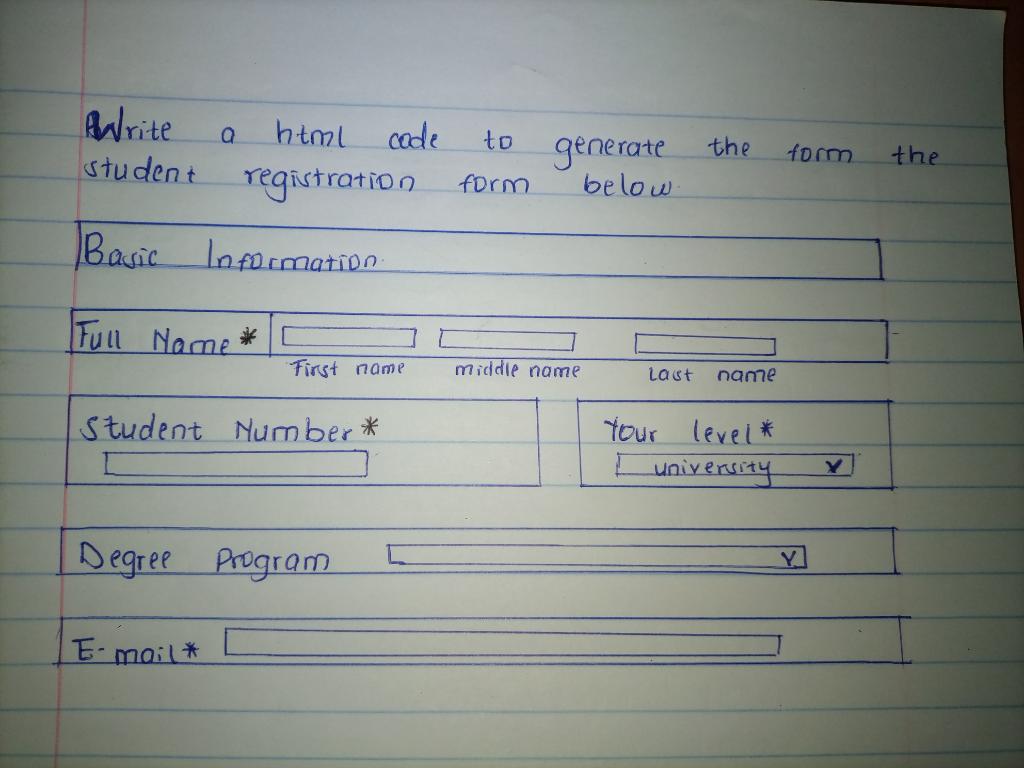 Write a html code to generate the form the
student registration form below.
Basic Information.
Full Name *
First name middle name Last name
Student Number * Your level *
university
Degree Program
E-mail *